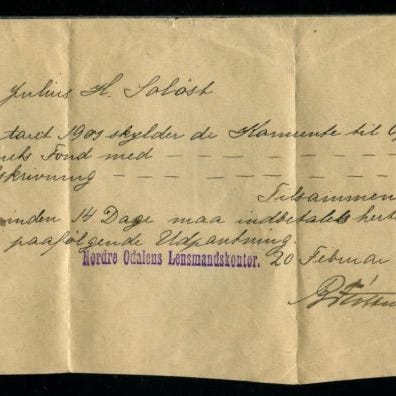 Julius H. Soløst
aaret 1909 skylder de Komunte til
Fond med — — — — — —
skrivning — — — — — —
Tilsammen
inden 14 Dage maa indbetales hert
paafølgende Udpantning.
Nordre Odalens Lensmandskontor. 20 Februar